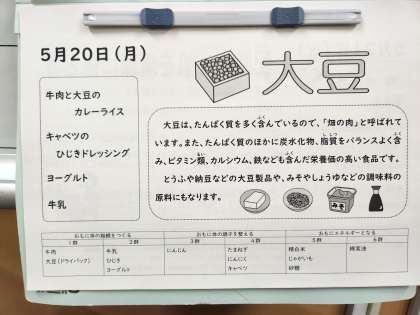 5月20日(月)
大豆
牛肉と大豆の
カレーライス
キャベツの
ひじきドレッシング
ヨーグルト
牛乳
大豆は、たんぱく質を多く含んでいるので、「畑の肉」と呼ばれて
います。また、たんぱく質のほかに炭水化物、脂質をバランスよく含
み、ビタミン類、カルシウム、鉄なども含んだ栄養価の高い食品です。
とうふや納豆などの大豆製品や、みそやしょうゆなどの調味料の
原料にもなります。
みそ
おもに体の組織をつくる おもに体の調子を整える おもにエネルギーとなる
1群 2群 3群 4群 5群 6群
牛肉 牛乳 にんじん たまねぎ 精白米
大豆(ドライパック) ひじき にんにく じゃがいも
ヨーグルト キャベツ 砂糖